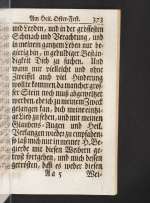 Am Heil. Oster-Fest. 373
und Leyden, und in der grösesten
Schmach und Verachtung, und
in meinem gantzen Leben nur be-
gierig bin, in geduldiger
Dich zu suchen. Und
wann mir vielleicht und ohne
Zweiffel auch viel Hindernuß
wollte kommen, da mancher gros-
ser Stein noch muß abgewaltzet
werden, ehe ich zu meinem Zweck
gelangen kan, dich mein eintzi-
ge Lieb zu sehen, und mit meinen
Glaubens-Augen und Heil.
Verlangen wieder zu empfahen:
so laß mich nur in meiner H. Be-
gierde mit diesen Weibern ge-
trost fortgehen, und mich dessen
getrösten, daß es weder diesen
Aa 5 Wei-